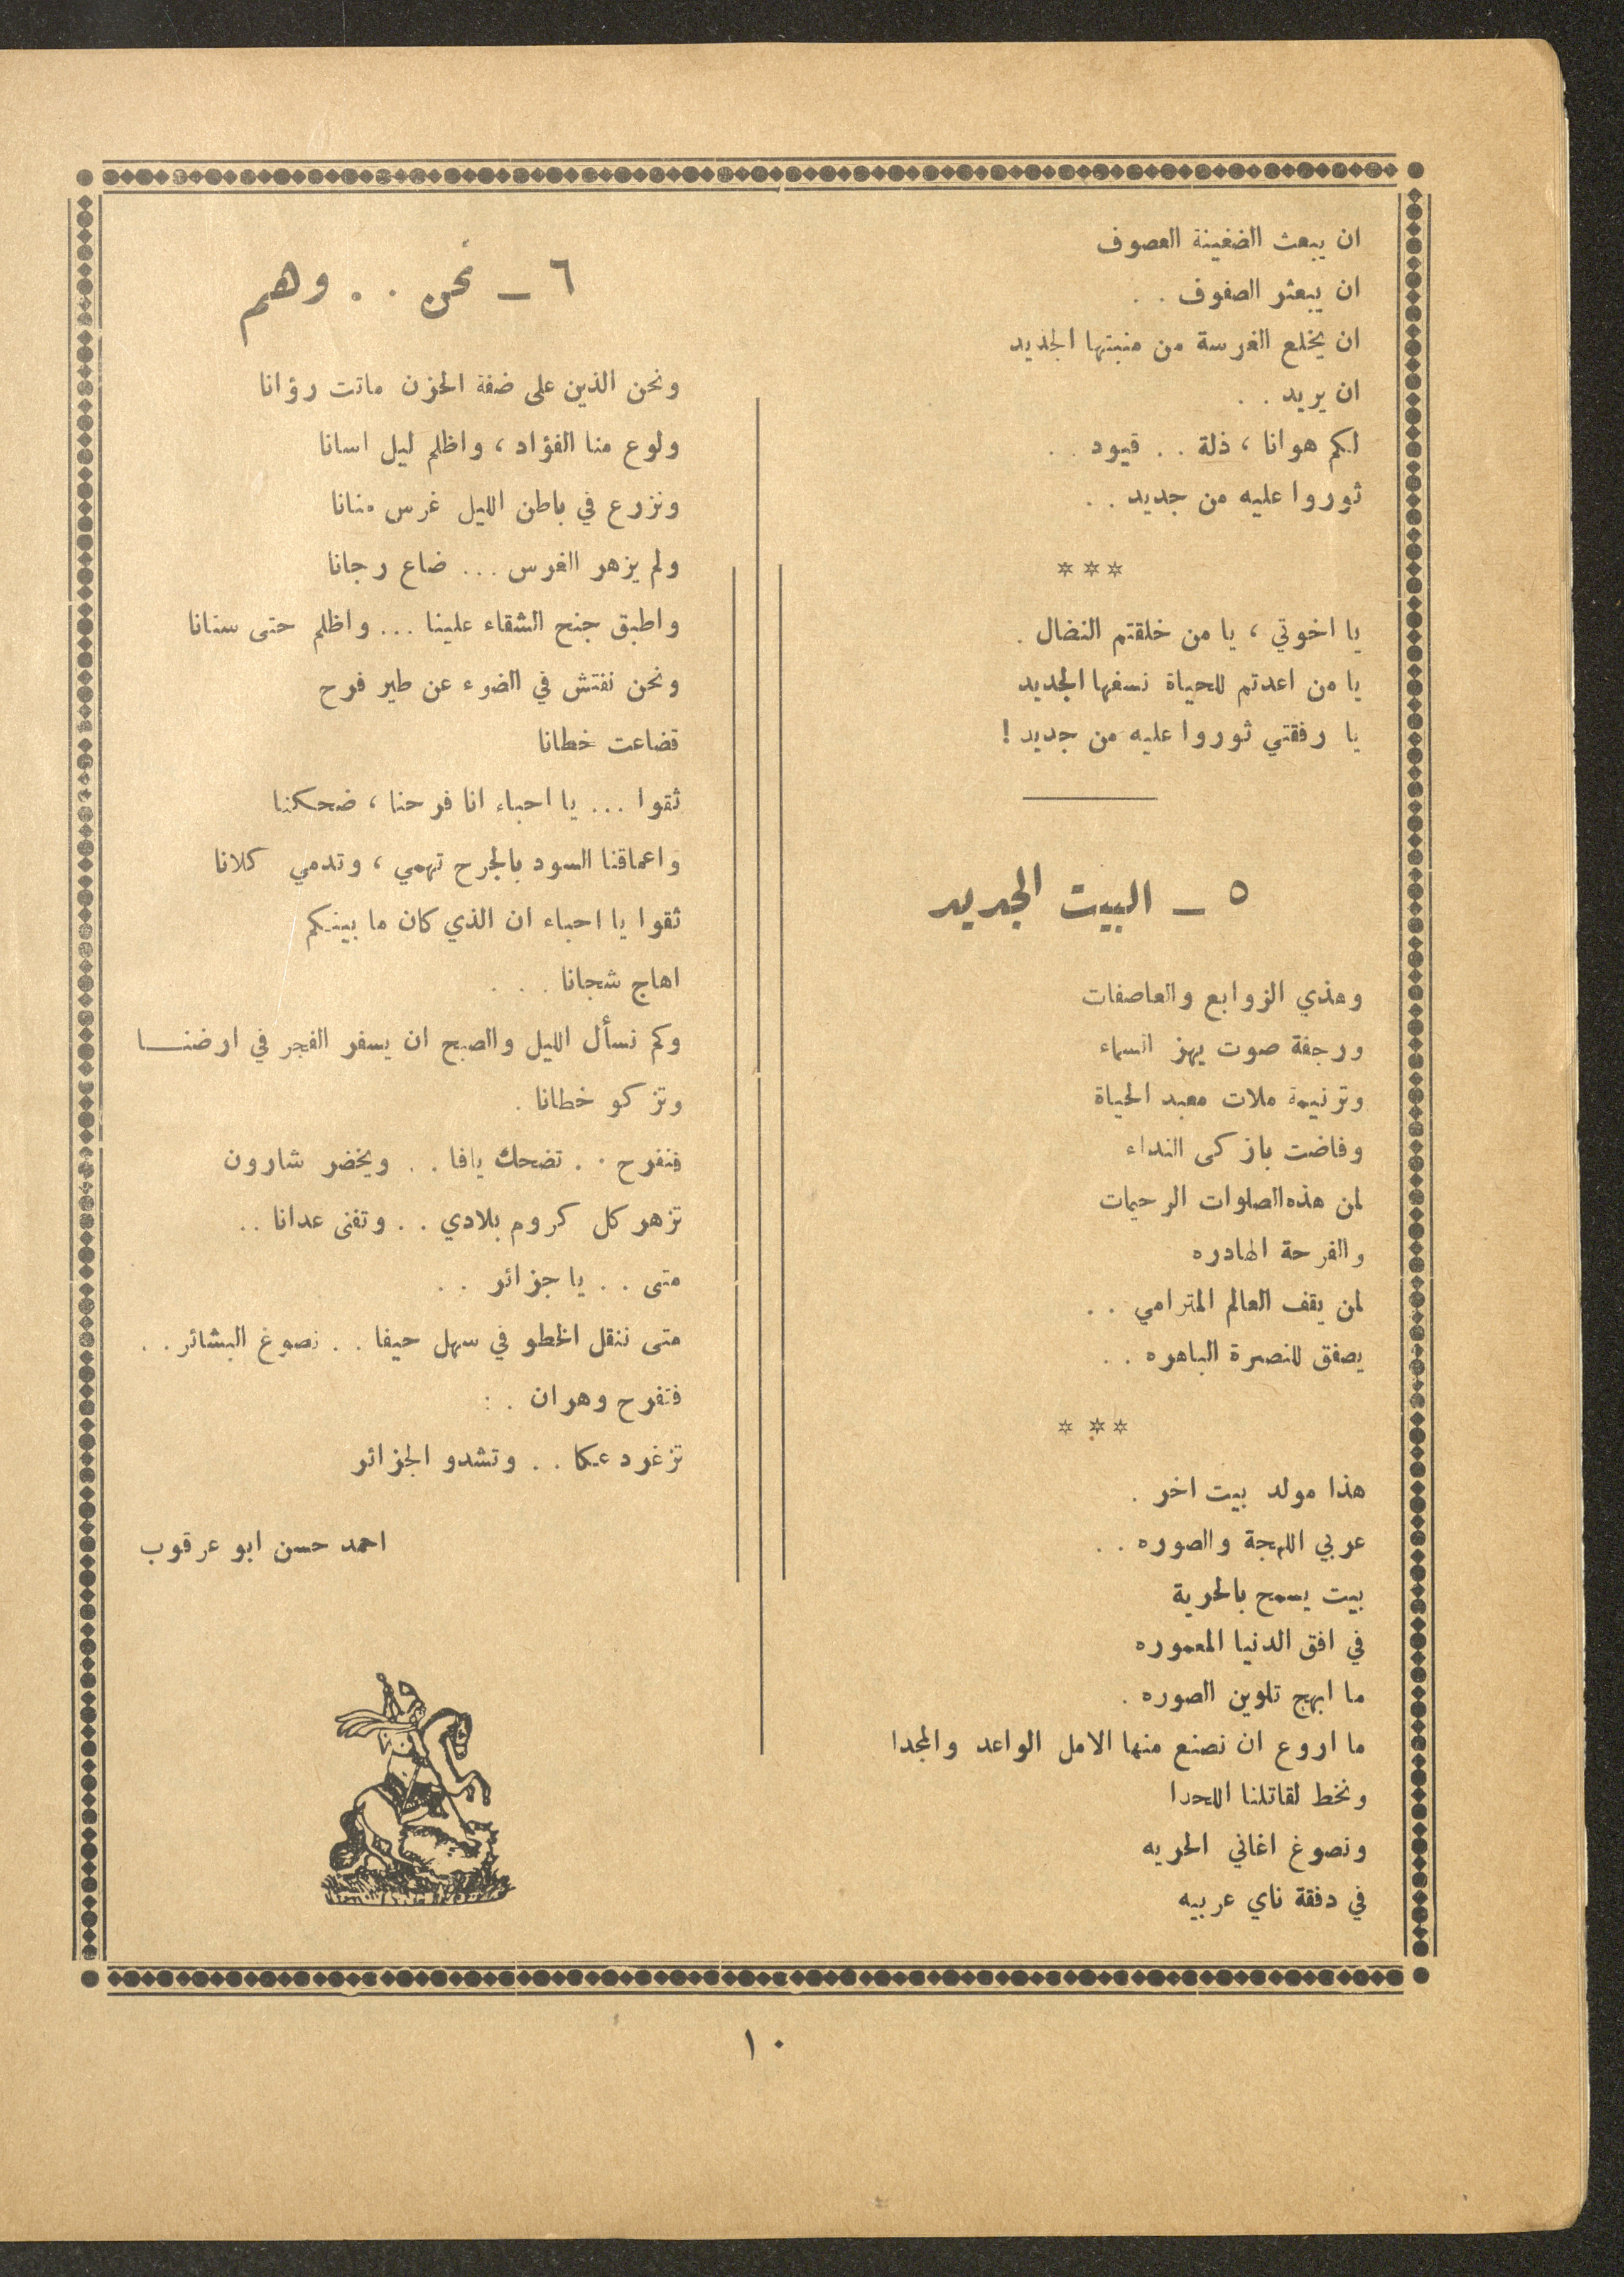 ان يبعث الضغينة العصوف
ان يبعثر الصفوف . .
ان يخلع الغرسة من منبتها الجديد
ان يريد . .
لكم هوانا ، ذلة . . قيود . .
ثوروا عليه من جديد . .
***
يا اخوتي ، يا من خلقتم النضال .
يا من اعدتم للحياة نسغها الجديد
يا رفقتي ثوروا عليه من جديد !
٥ ــ البيت الجديد
وهذي الزوابع والعاصفات
ورجفة صوت يهز السماء
وترنيمة ملات معبد الحياة
وفاضت بازكى النداء
لمن هذه الصلوات الرحيمات
والفرحة الهادره
لمن يقف العالم المترامي . .
يصفق للنصرة الباهره . .
***
هذا مولد بيت اخر .
عربي اللهجة والصوره . .
بيت يسمح بالحرية
في افق الدنيا المعموره
ما ابهج تلوين الصوره .
ما اروع ان نصنع منها الامل الواعد والمجدا
ونخط لقاتلنا اللحدا
ونصوغ اغاني الحريه
في دفقة ناي عربيه
٦ ــ نحن . . وهم
ونحن الذين على ضفة الحزن ماتت رؤانا
ولوع منا الفؤاد ، واظلم ليل اسانا
ونزرع في باطن الليل غرس منانا
ولم يزهر الغرس ... ضاع رجانا
واطبق جنح الشقاء علينا ... واظلم حتى سنانا
ونحن نفتش في الضوء عن طير فرح
فضاعت خطانا
ثقوا ... يا احباء انا فرحنا ، ضحكنا
واعماقنا السود بالجرح تهمي ، وتدمي كلانا
ثقوا يا احباء ان الذي كان ما بينكم
اهاج شجانا . . .
وكم نسأل الليل والصبح ان يسفر الفجر في ارضنــا
وتزكو خطانا .
فنفرح . . تضحك يافا . . ويخضر شارون
تزهر كل كروم بلادي . . وتفنى عدانا ..
متى . . يا جزائر . .
متى ننقل الخطو في سهل حيفا . . نصوغ البشائر . .
فتفرح وهران . :
تزغرد عكا . . وتشدو الجزائر
احمد حسن ابو عرقوب
١٠